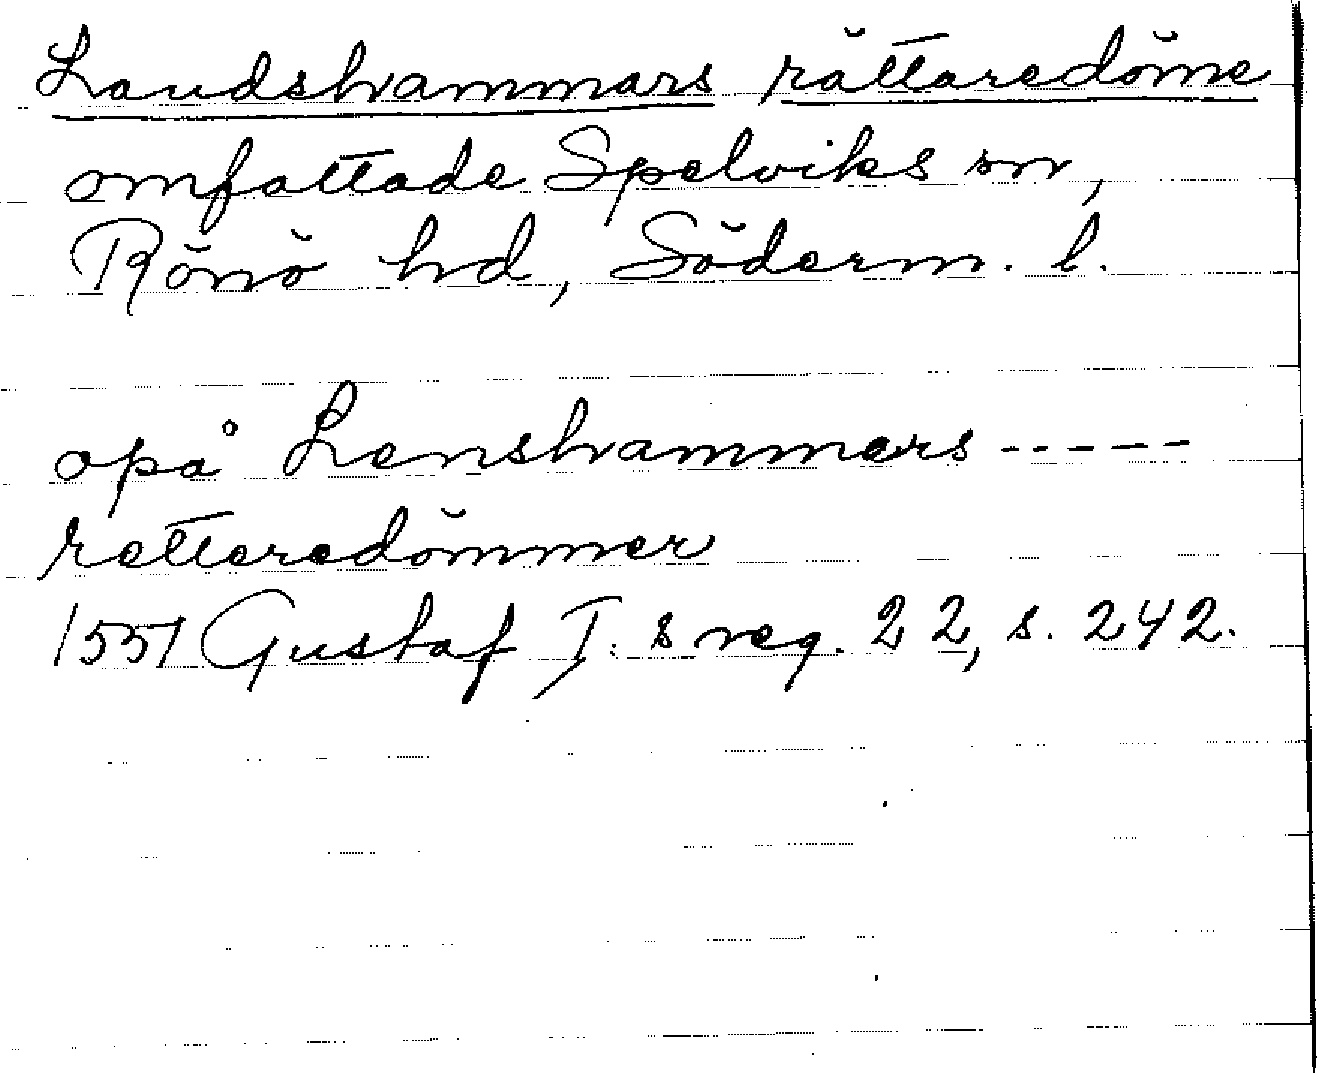 Landshammars rättaredöme
omfattade Spelviks sn,
Rönö hd, Söderm. l.
opå Lenshammers -----
retteredömmer
1551 Gustaf I.s reg. 22, s. 242.